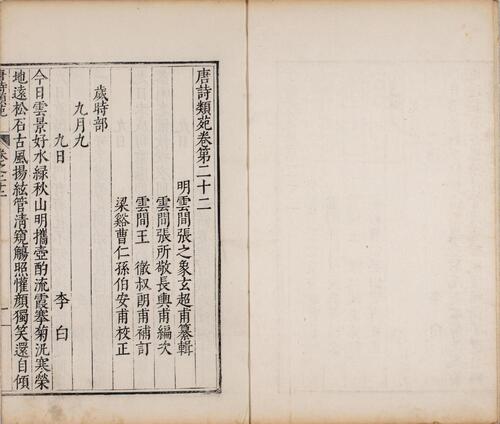 唐詩類苑卷第二十二
明雲間張之象玄超甫纂輯
雲間張所敬長輿甫編次
雲間王徹叔朗甫補訂
梁谿曹仁孫伯安甫校正
歲時部
九月九
九日 李白
今日雲景好水綠秋山明攜壺酌流霞搴菊泛寒榮
地遠松石古風揚絃管清窺觴照懽顏獨笑還自傾